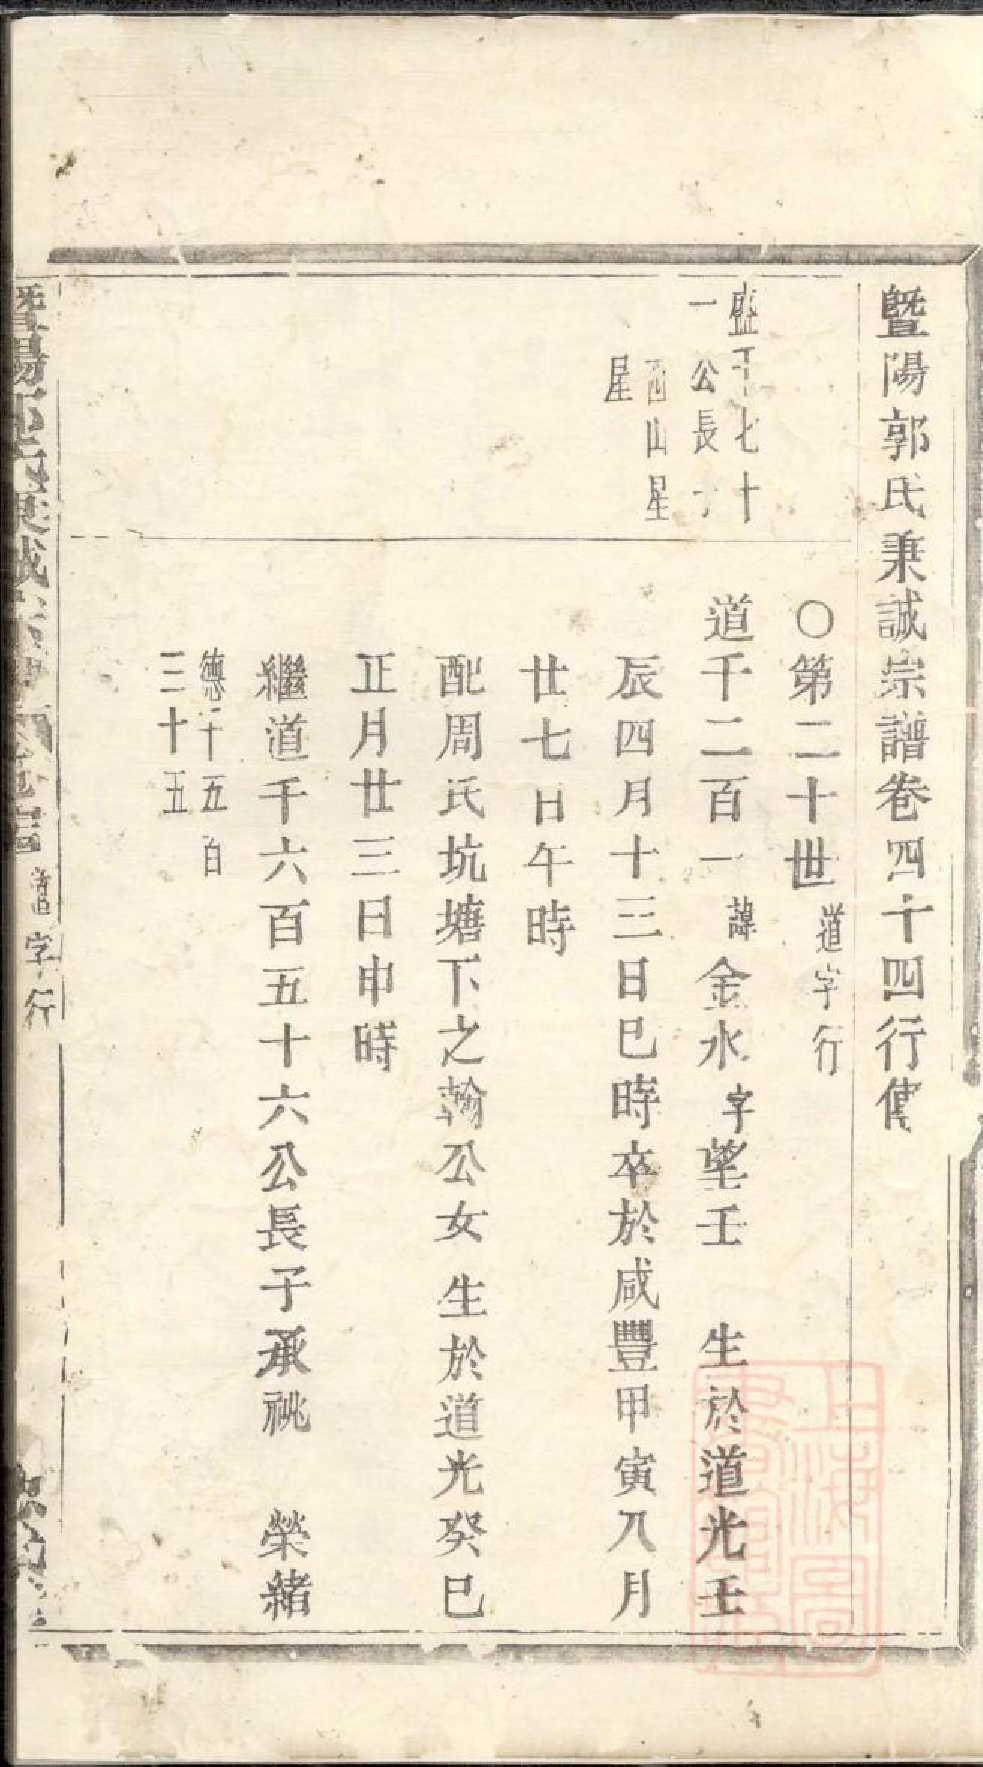 暨陽郭氏秉誠宗譜卷四十四行傳
○第二十世道字行
盛千七十
一公長子
西山星
星
道千二百一諱金水字望壬 生於道光壬
辰四月十三日巳時卒於咸豐甲寅八月
廿七日午時
配周氏坑塘下之翰公女 生於道光癸巳
正月廿三日申時
繼道千六百五十六公長子承祧 榮緒
德千五百
三十五
暨陽郭氏秉誠宗譜 道字行
上海圖